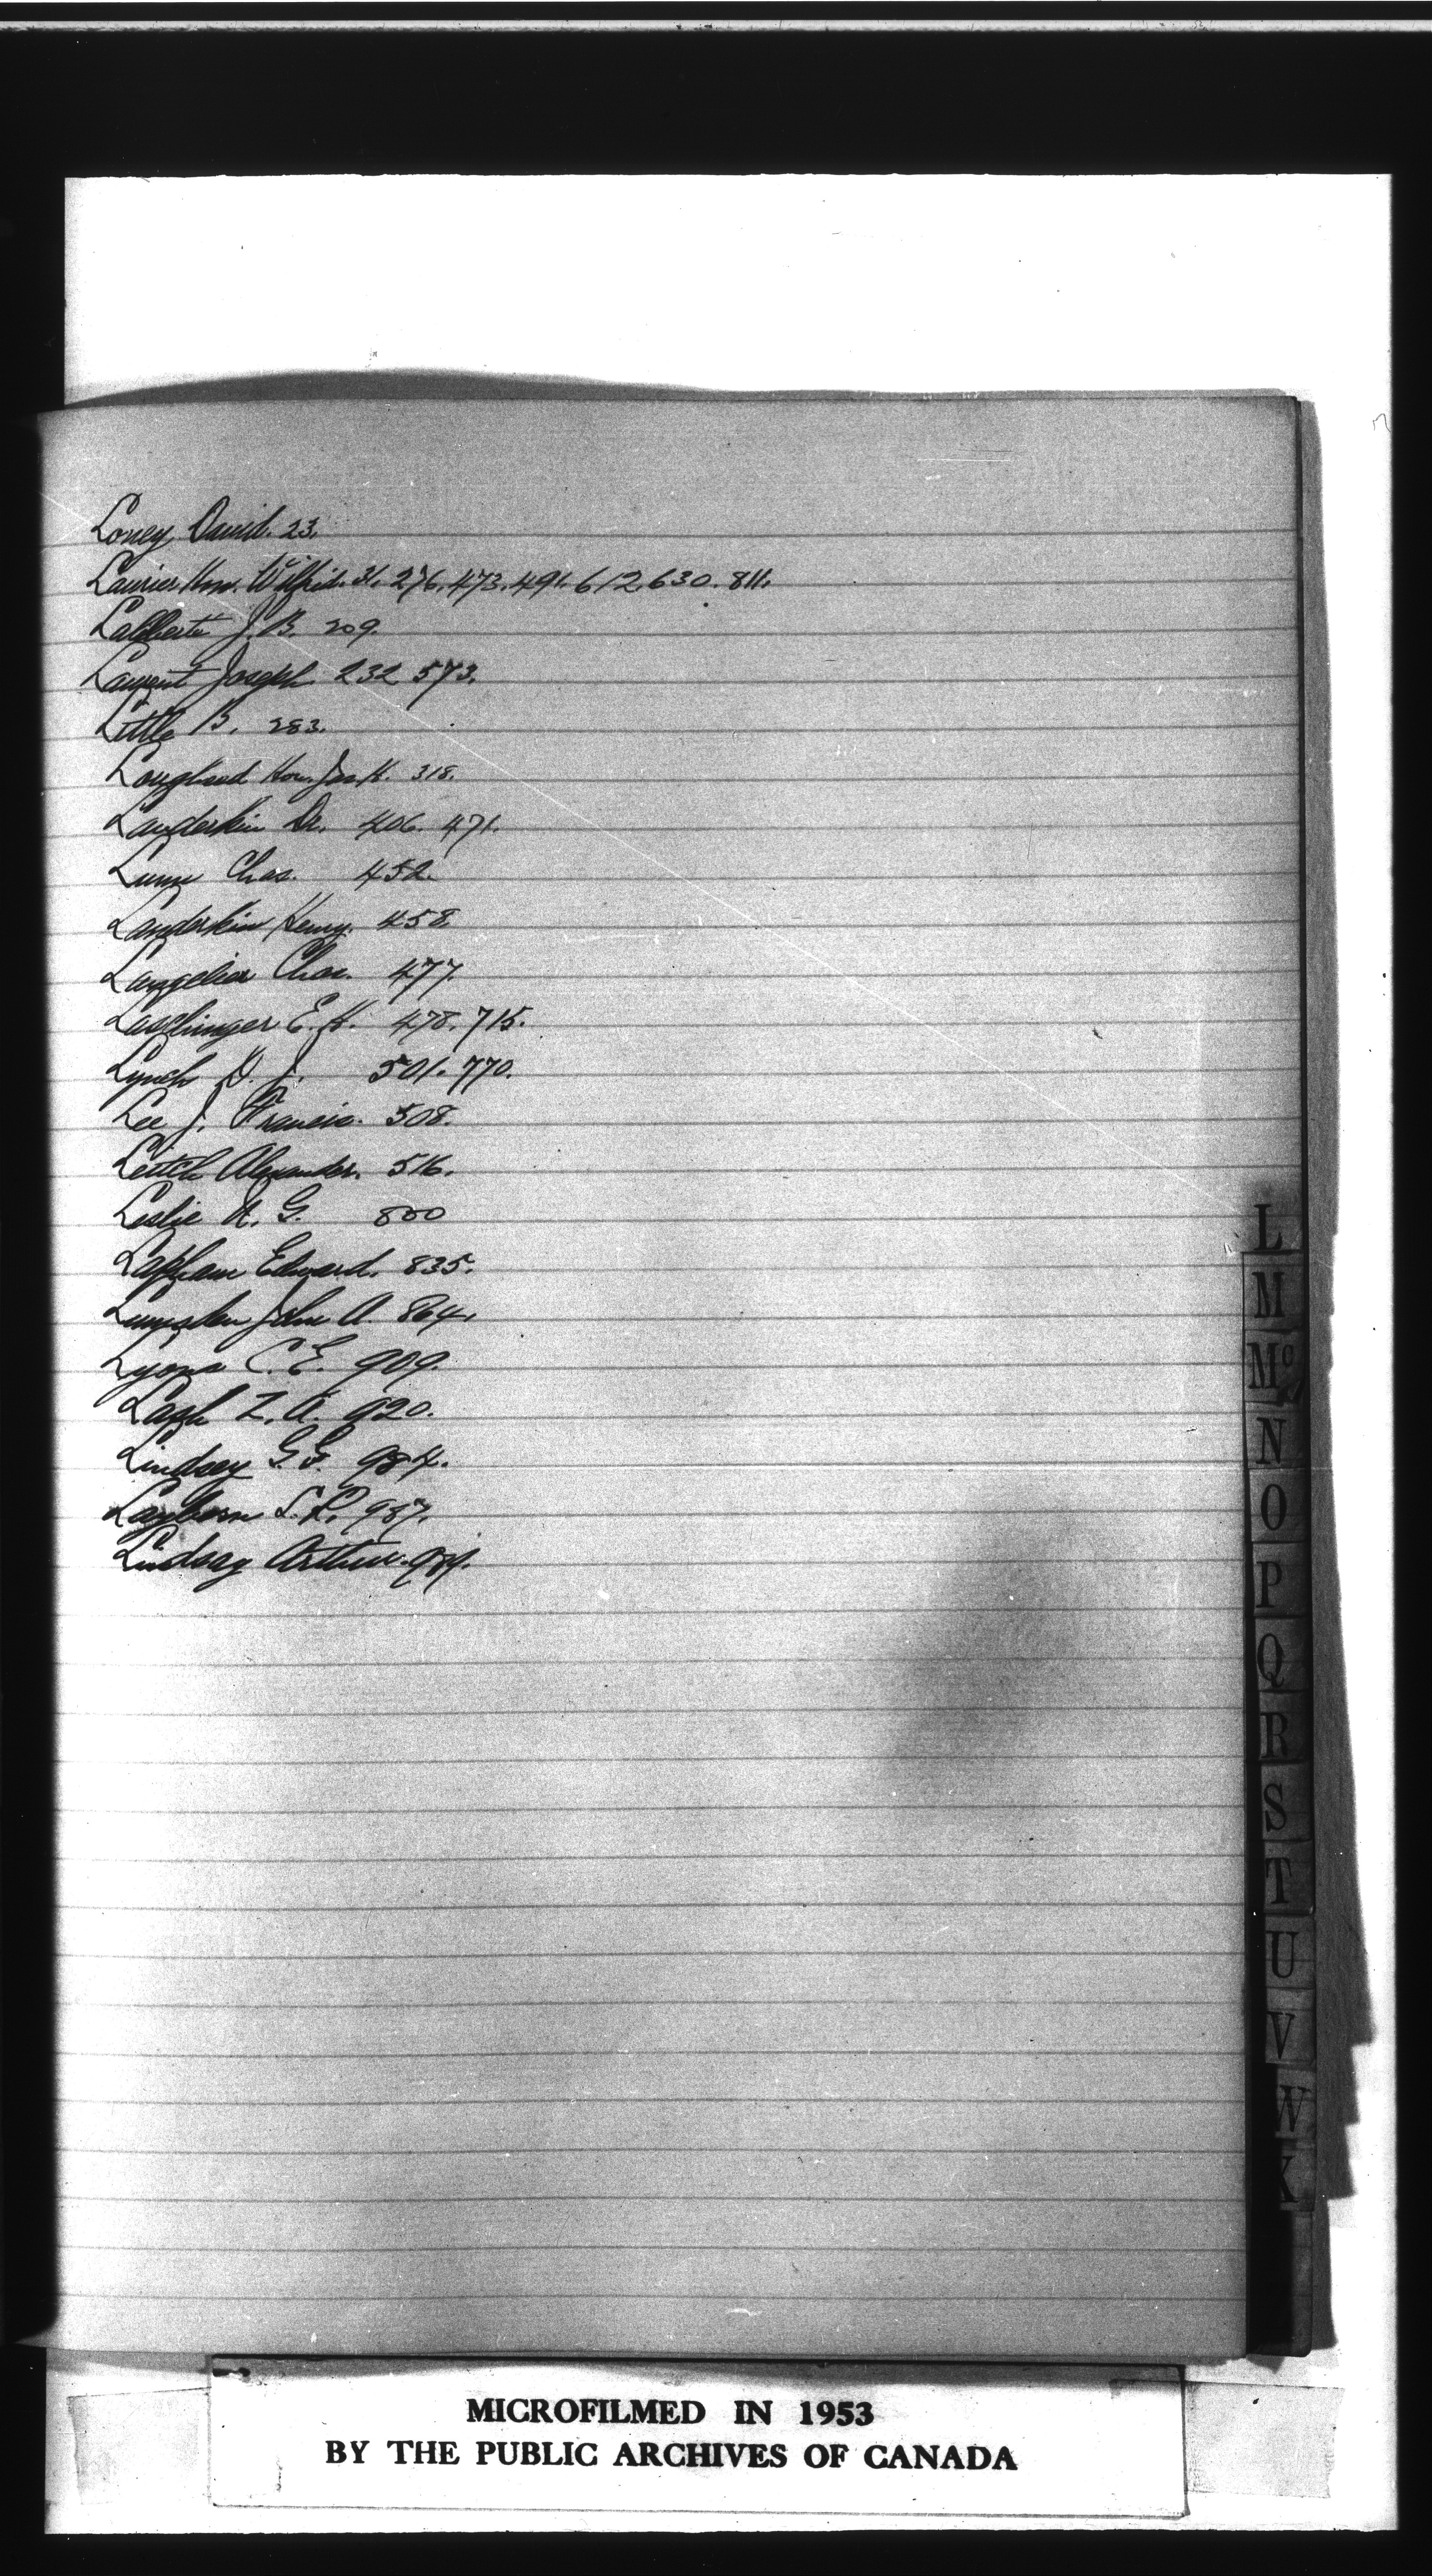 Loney David. 23.
Laurier Hon. Wilfrid. 31. 276. 473. 491. 612. 630. 811.
Laliberté J. B. 209.
Laurent Joseph 232 573.
Little B. 283.
Lougheed Hon. Jas. H. 318.
Landerkin Dr. 406. 471.
Lunn Chas. 452.
Landerkin Henry. 458.
Langelier Chas. 477.
Laschinger E. H. 478. 715.
Lynch D. J. 501. 770.
Lee J. Francis. 508.
Leitch Alexander. 516.
Leslie A. G. 800
Lapham Edward. 835.
Lumsden John A. 864.
Lyons C. E. 909.
Lash Z. A. 920.
Lindsey G. G. 984.
Layborn S. L. 987.
Lindsay Arthur.
L
M
Mc
N
O
P
Q
R
S
T
U
V
W
X
MICROFILMED IN 1953
BY THE PUBLIC ARCHIVES OF CANADA